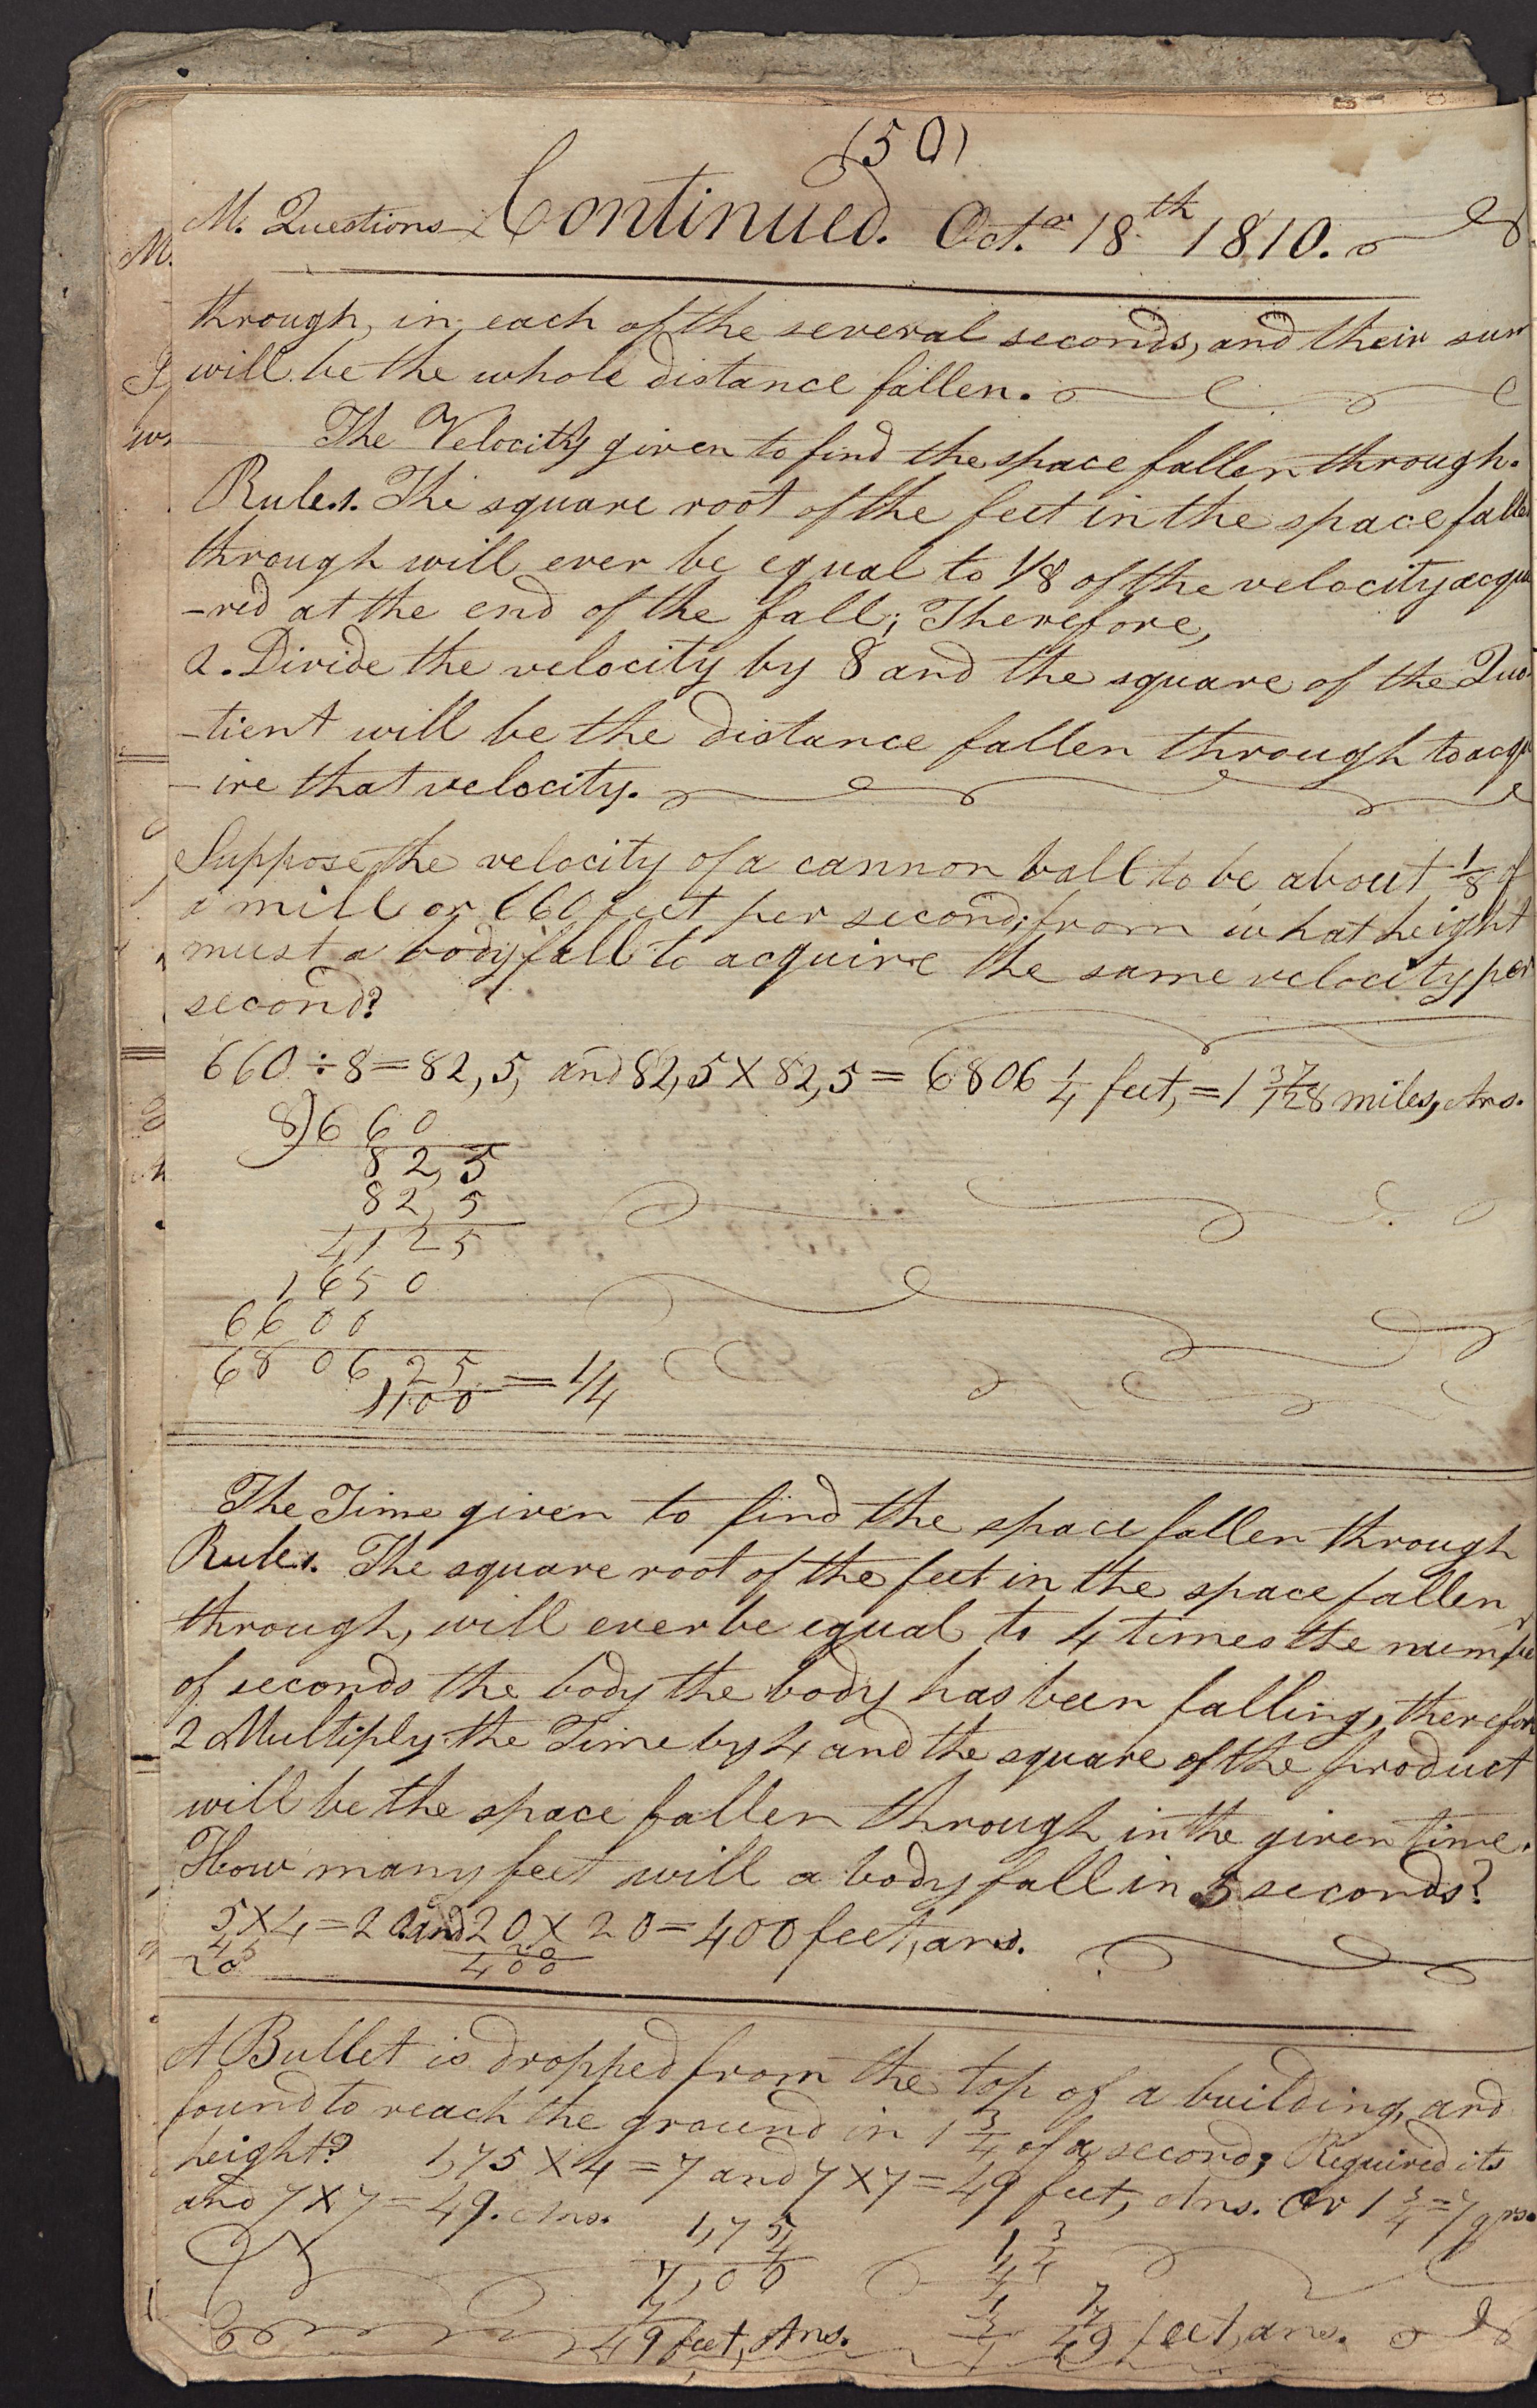 (50)
M. Questions Continued. Oct.r 18th 1810.
through, in each of the several seconds, and their sum
will be the whole distance fallen.
The Velocity given to find the space fallen through.
Rule.1. The square root of the feet in the space falle
through will ever be equal to 1/8 of the velocity acqui
-red at the end of the fall; Therefore,
2. Divide the velocity by 8 and the square of the Quo
-tient will be the distance fallen through to acqu
-ire that velocity.
Suppose the velocity of a cannon ball to be about 1/8 of
a mile or 660 feet per second; from what height
must a body fall to acquire the same velocity per
second?
660 ÷ 8 = 82,5, and 82,5 X 82,5 = 6806 1/4 feet, = 1 37/128 miles, Ans.
8)660
82,5
82,5
4125
1650
6600
6806,25
1100 = 1/4
The Time given to find the space fallen through
Rule1. The square root of the feet in the space fallen
through, will ever be equal to 4 times the number
of seconds the body the body has been falling, therefor
2 Multiply the Time by 4 and the square of the product
will be the space fallen through in the given time.
How many feet will a body fall in 5 seconds?
5X4=20 and 20 X 20=400 feet, ans.
4 20
20 400
A Bullet is dropped from the top of a building, and
found to reach the ground in 1 3/4 of a second; Required its
height? 1,75 X 4 = 7 and 7X7=49 feet, Ans. Or 1 3/4=7 qrs.
and 7X7=49. Ans.
1,75 1 3/4
4 4
7,00
7 1 7
3 7
49 feet, Ans. 4 49 feet, ans.